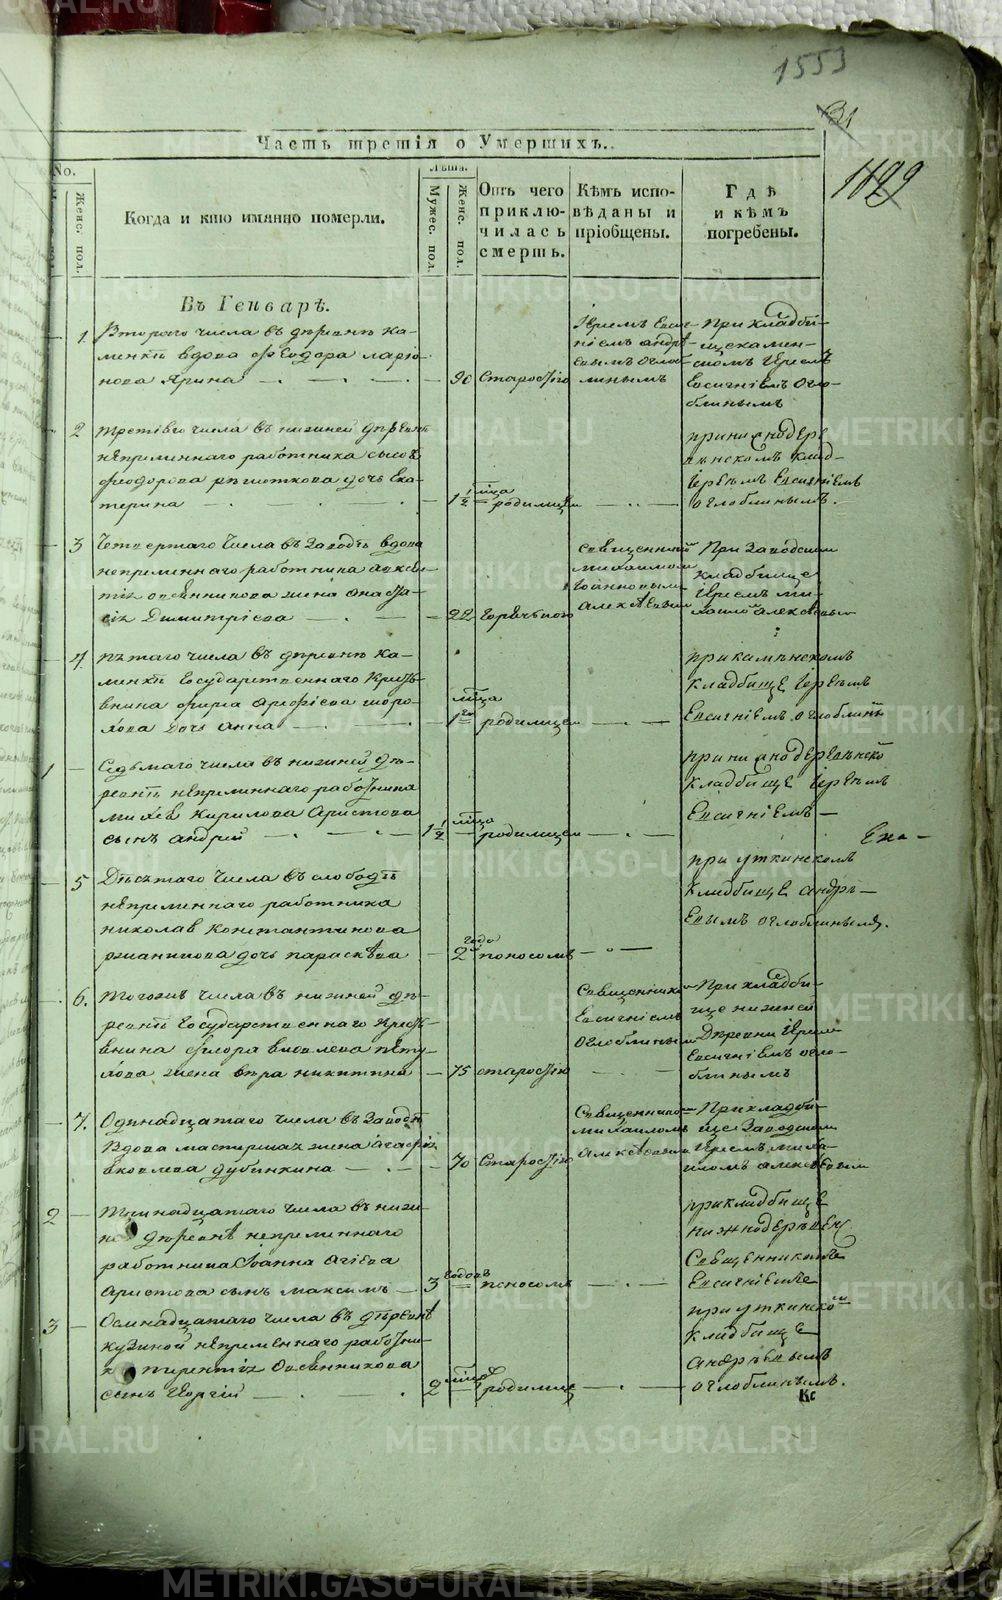 1553
31
1129
Часть третія о Умершихъ.
No.
Женс. пол.
Когда и кто имянно померли.
Лѣта.
Мужес. пол.
Женс. пол.
Отъ чего приключилась смерть.
Кѣмъ исповѣданы и пріобщены.
Гдѣ и кѣмъ погребены.
Въ Генварѣ.
1. Втораго числа въ деревнѣ Ка-
менкѣ вдова Ѳеодора Ларіо-
нова Ярина
90 Старостію
Іереемъ Евси-
гніемъ Андрѣ-
евымъ Оглоб-
линымъ
При кладби-
ще камен-
скомъ Іереемъ
Евсигніемъ Огло-
блинымъ
2 Третьяго числа въ нижней деревнѣ
непременнаго работника Сысоя
Ѳеодорова дочь Ека-
терина
1 1/2 м͠ца родимцем
при нижнодере-
венскомъ клад-
Іереемъ Евсигніемъ
Оглоблинымъ.
3 Четвертаго числа въ Заводѣ вдова
непременнаго работника
Овсянникова жена Анаста-
сія Димитріева
22 Горячкою
Священникомъ
Михаиломъ
Іоанновымъ
Алексѣевымъ
При Заводскомъ
кладбище
Іереемъ Ми-
хаиломъ Алексѣевым
4. Пятаго числа въ деревнѣ Ка-
менкѣ Государственнаго Кресть-
янина Фирса Арефіева
дочь Анна
1 м͠ца родимцем
при каменскомъ
кладбище Іереемъ
Евсигніемъ Оглоблинымъ
1 Седьмаго числа въ нижней де-
ревнѣ непременнаго работника
Михея Кирилова Аристова
сынъ Андрей
1 1/2 м͠ца родимцем
при нижнодеревенской
кладбище Іереемъ
Евсигніемъ
5 Десятаго числа въ слободѣ
непременнаго работника
Николая Константинова
дочь Параскева
2 года поносомъ
при уткинскомъ
кладбище Андрѣ-
евымъ Оглоблиным.
6. Тогожъ числа въ нижней де-
ревнѣ Государственнаго Кресть-
янина Флора Яковлева
жена Вѣра Никитина
75 старостію
Священникомъ
Евсигніемъ
Оглоблиным
При кладби-
ще нижней
Деревни Іереемъ
Евсигніемъ Огло-
блинымъ
7. Одинадцатаго числа въ Заводѣ
Вдова мастерская жена
Яковлева Дубинкина
70 Старостію
Священникомъ
Михаиломъ
Алексѣевымъ
При кладби-
ще Заводскомъ
Іереемъ Миха-
иломъ Алексѣевым
2 Тринадцатаго числа въ нижн-
ней деревнѣ непременнаго
работника Іоанна Агіева
Аристова сынъ Максимъ
3 годовъ поносомъ
при кладбище
нижнодеревен.
Священникомъ
Евсигніемъ
3 Осмнадцатаго числа въ деревнѣ
Кузиной непременнаго работни-
ка Терентія Овсянникова
сынъ Георгій
2 м͠ца родимце
при уткинской
кладбище
Андрѣевымъ
Оглоблинымъ.
Кс
METRIKI.GASO-URAL.RU